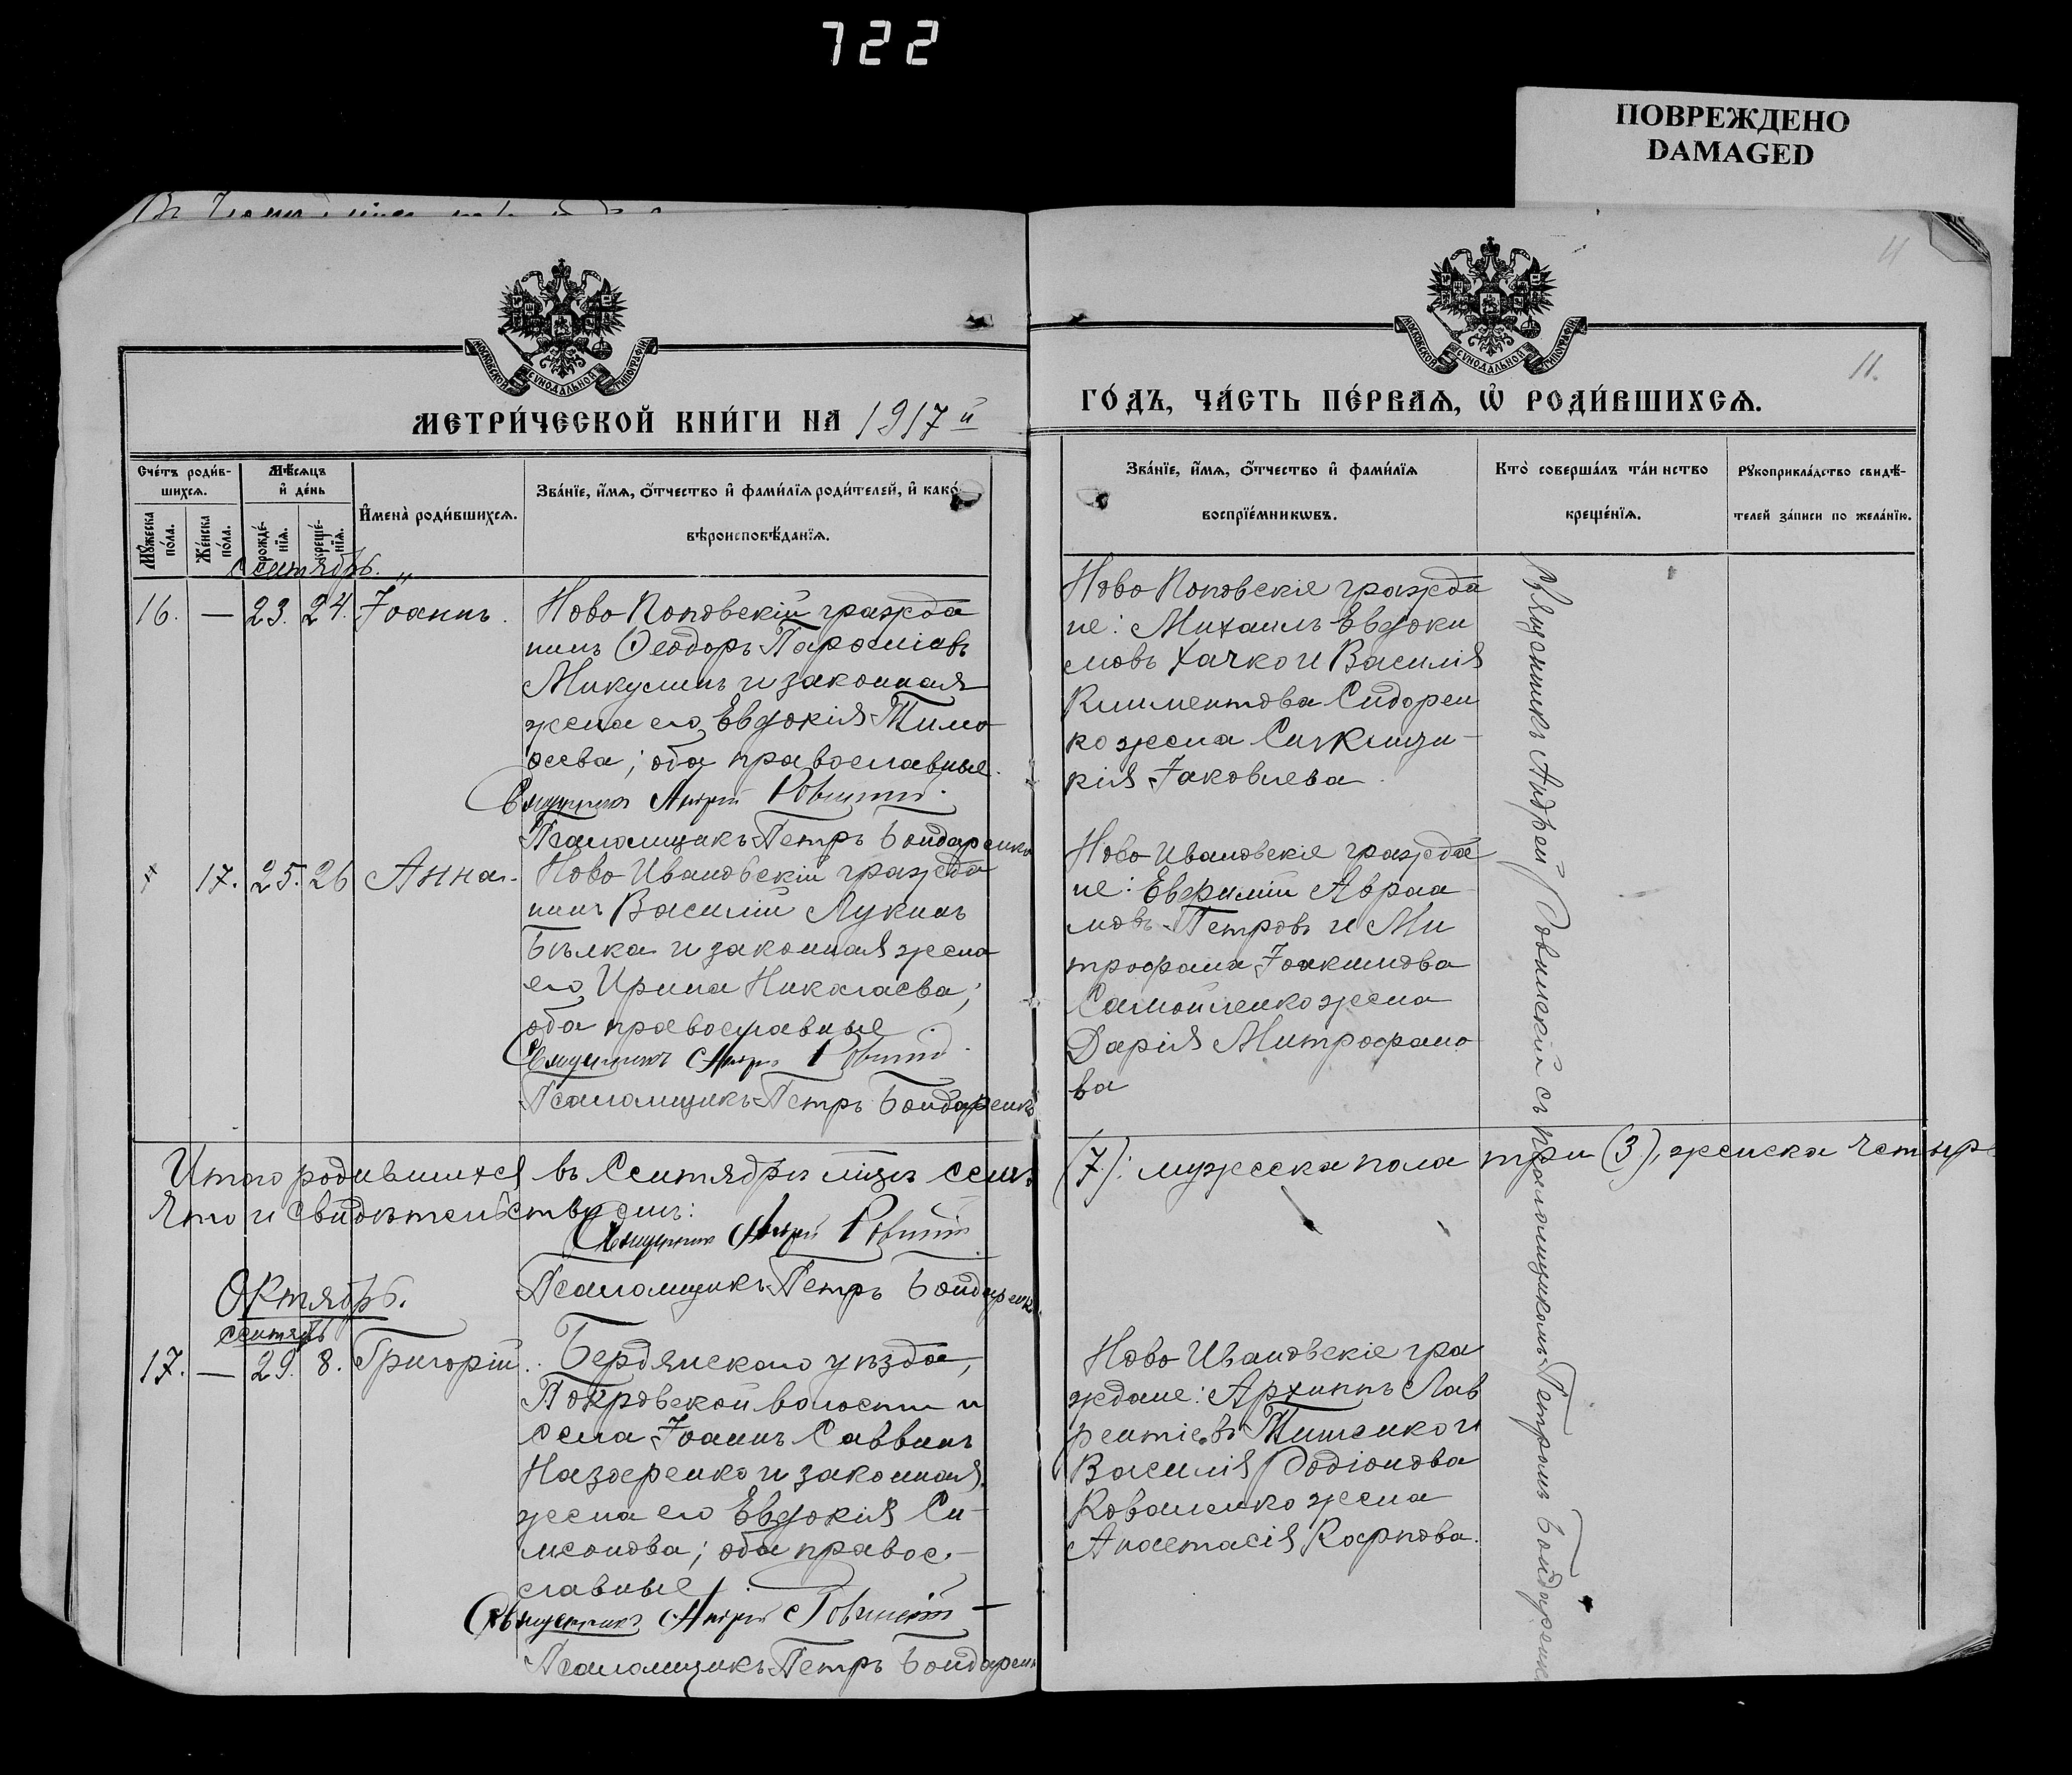 722
ПОВРЕЖДЕНО
DAMAGED
11
11.
МОСКОВСКОЙ СУНОДАЛЬНОЙ ТИПОГРАФІИ
МОСКОВСКОЙ СУНОДАЛЬНОЙ ТИПОГРАФІИ
МЕТРИ́ЧЕСКОЙ КНИ́ГИ НА 1917 й
ГО́ДЪ, ЧА́СТЬ ПЕ́РВАѦ, Ѡ҆ РОДИ́ВШИХСѦ.
Сче́тъ роди́в-
шихсѧ.
Мѣ́сѧцъ
и҆ де́нь
Мꙋ́жеска
по́ла.
Же́нска
по́ла.
рожде́-
нїѧ.
креще́-
нїѧ.
И҆мена̀ роди́вшихсѧ.
Зва́нїе, и҆́мѧ, ѻ҆́тчество и҆ фами́лїѧ роди́телей, и҆ како́-
вѣроисповѣ́данїѧ.
Зва́нїе, и҆́мѧ, ѻ҆́тчество и҆ фами́лїѧ
воспрїе́мникѡвъ.
Кто̀ соверша́лъ та́инство
креще́нїѧ.
Рꙋкоприкла́дство свидѣ́-
телей за́писи по жела́нїю.
Сентябрь.
16. — 23. 24. Іоаннъ.
Ново Поповскій гражда
нинъ Ѳеодоръ
Микулинъ и законная
жена его Евдокія Тимо
ѳеева; оба православные.
Священникъ Андрей Ровинскій
Псаломщикъ Петръ Бондаренко
Ново Поповскіе гражда
не: Михаилъ Евдоки
мовъ Хачко и Василія
Климентова Сидорен
ко жена Синклити-
кія Іаковлева.
17. 25. 26 Анна.
Ново Ивановскій гражда
нинъ Василій Лукинъ
Бѣлка и законная жена
его Ирина Николаева;
оба православные.
Священникъ Андрей Ровинскій
Псаломщикъ Петръ Бондаренко
Ново Ивановскіе гражда
не: Евфимій Авраа
мовъ Петровъ и Ми
трофана Іоакимова
Самойленко жена
Дарія Митрофано
ва
Священникъ Андрей Ровинскій съ псаломщикомъ Петромъ Бондаренко
Итого родившихся въ Сентябрѣ мѣсяцѣ семь (7): мужеска пола три (3), женска четыре
Что и свидѣтельствуемъ:
Священникъ Андрей Ровинскій
Псаломщикъ Петръ Бондаренко
Октябрь.
сентябрь
17. — 29. 8. Григорій.
Бердянскаго уѣзда,
Покровской волости и
села Іоаннъ Саввинъ
Назаренко и законная
жена его Евдокія Си-
меонова; оба правос-
славные.
Священникъ Андрей Ровинскій
Псаломщикъ Петръ Бондаренко
Ново Ивановскіе гра
ждане: Архиппъ Лав
рентіевъ Тишенко и
Василія Родіонова
Коваленко жена
Анастасія Карпова.